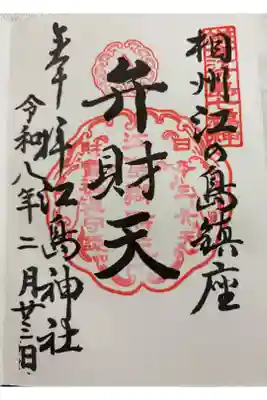 相州江の島鎮座
弁財天
奉拝江島神社
令和八年二月廿三日